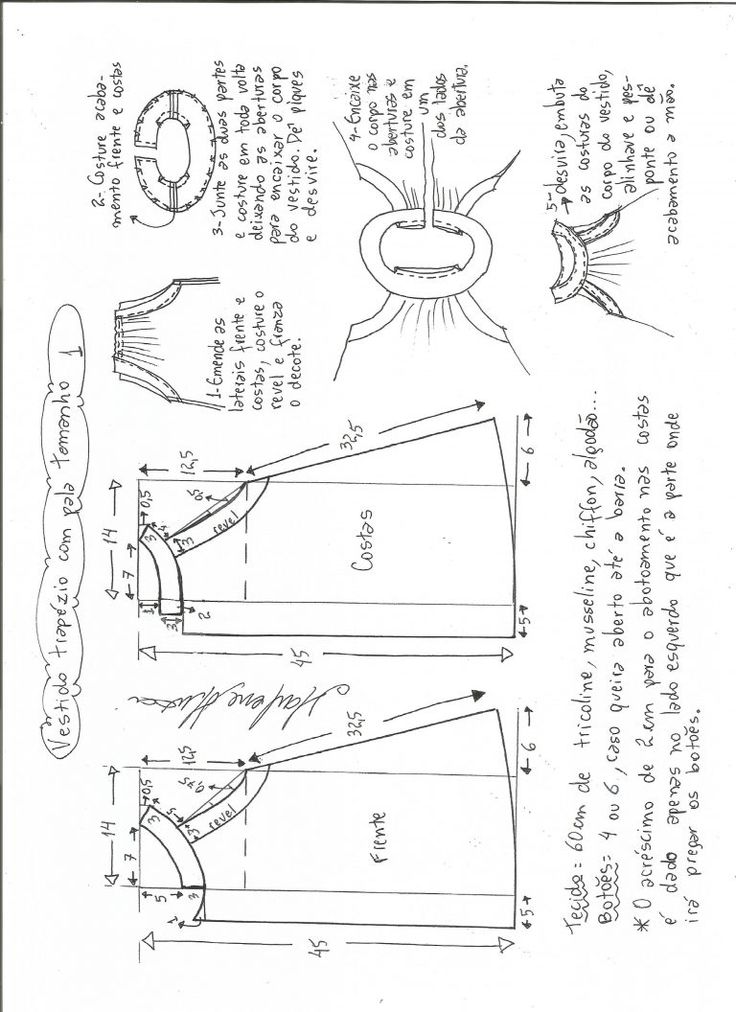 Vestido trapézio com pala tamanho 1
45
14
7
0,5
3
5
12,5
0,75
3
revel
5
3
1
Frente
32,5
5
6
Marlene Mukai
45
14
7
0,5
3
4
12,5
0,5
3
revel
1
3
2
Costas
32,5
5
6
1-Emende as
laterais frente e
costas, costure o
revel e franza
o decote.
2- Costure acaba-
mento frente e costas
3-Junte as duas partes
e costure em toda volta
deixando as aberturas
para encaixar o corpo
do vestido. Dê piques
e desvire.
4-Encaixe
o corpo nas
aberturas e
costure em
um
dos lados
da abertura.
5-desvira, embuta
as costuras do
corpo do vestido,
alinhave e pes-
ponte ou dê
acabamento a mão.
Tecido = 60cm de tricoline, musseline, chiffon, algodão...
Botões = 4 ou 6, caso queira aberto até a barra.
* O acréscimo de 2cm para o abotoamento nas costas
é dado apenas no lado esquerdo que é a parte onde
irá pregar os botões.